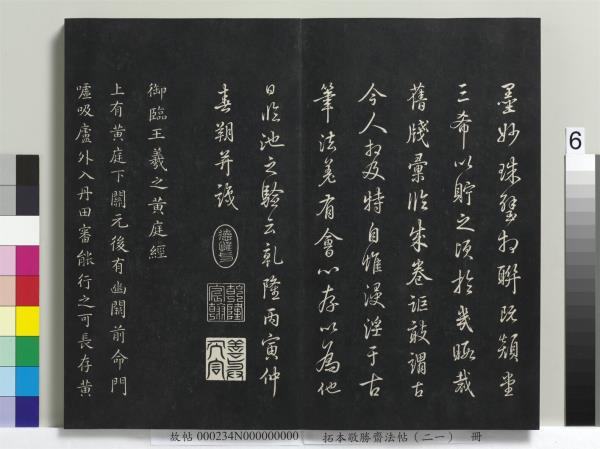 墨妙珠璧相聯既顏堂
三希以貯之頃於幾暇裁
舊牋彙臨成卷詎敢謂古
今人相及特自惟浸淫于古
筆法差有會心存以為他
日臨池之驗云乾隆丙寅仲
春朔并識
乾隆
宸翰
御臨王羲之黃庭經
上有黃庭下關元後有幽闕前命門
噓吸廬外入丹田審能行之可長存黃
6
故帖 000234N000000000
拓本敬勝齋法帖（二一） 冊